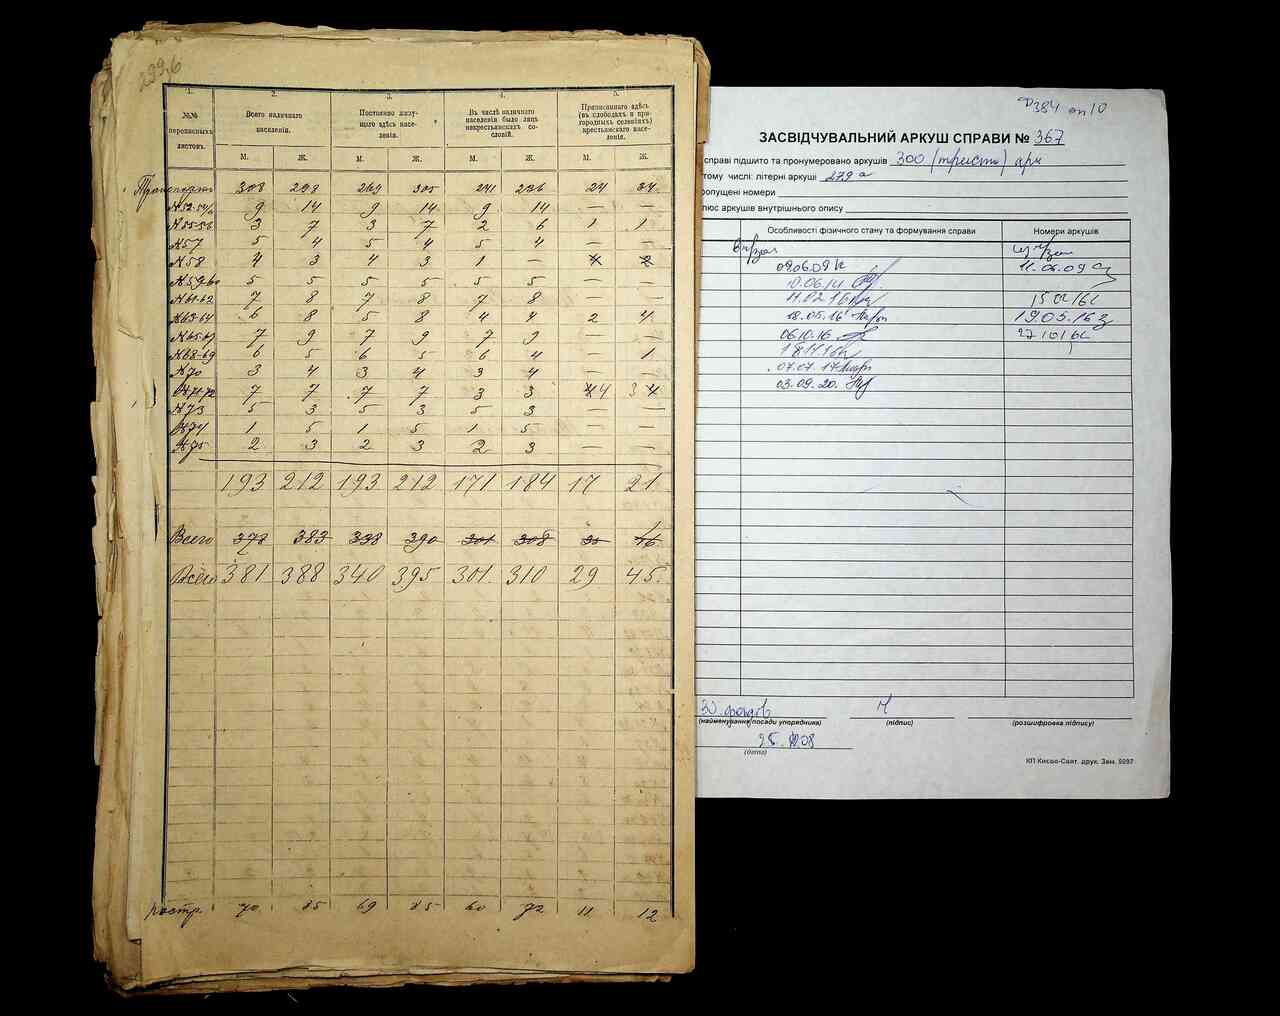 1. 2. 3. 4. 5.
№№ переписныхъ листовъ.
Всего наличнаго населенія.
Постоянно живущаго здѣсь населенія.
Въ числѣ наличнаго населенія было лицъ некрестьянскихъ сословій.
Приписаннаго здѣсь (въ слободахъ и пригородныхъ селеніяхъ) крестьянскаго населенія.
М. Ж. М. Ж. М. Ж. М. Ж.
308 298 269 305 241 236 24 34
9 14 9 14 9 14 — —
№55-56 3 7 3 7 2 6 1 1
№57 5 4 5 4 5 4 — —
№58 4 3 4 3 1 —
№59-60 5 5 5 5 5 5 — —
№61-62 7 8 7 8 7 8 — —
№63-64 6 8 5 8 4 4 2 4
7 9 7 9 7 9 — —
№68-69 6 5 6 5 6 4 — 1
№70 3 4 3 4 3 4 — —
№71-72 7 7 7 7 3 3 4 3
№73 5 3 5 3 5 3 — —
№74 1 5 1 5 1 5 — —
№75 2 3 2 3 2 3 — —
193 212 193 212 171 184 17 21
Всего 378 383 338 390 301 308 46
Всего 381 388 340 395 301. 310 29 45.
70 85 69 85 60 72 11 12
Ф384 оп10
ЗАСВІДЧУВАЛЬНИЙ АРКУШ СПРАВИ № 367
справі підшито та пронумеровано аркушів 300 (триста) арк
тому числі: літерні аркуші 279а
ропущені номери
люс аркушів внутрішнього опису
Особливості фізичного стану та формування справи
Номери аркушів
09.06.09 11.06.09
10.06.14
11.02.16 15 02 16
18.05.16 19.05.16
06.10.16 27 10 16
07.07.17
03.09.20.
(найменування посади упорядника) (підпис) (розшифровка підпису)
(дата)
КП Києво-Свят. друк. Зам. 5097